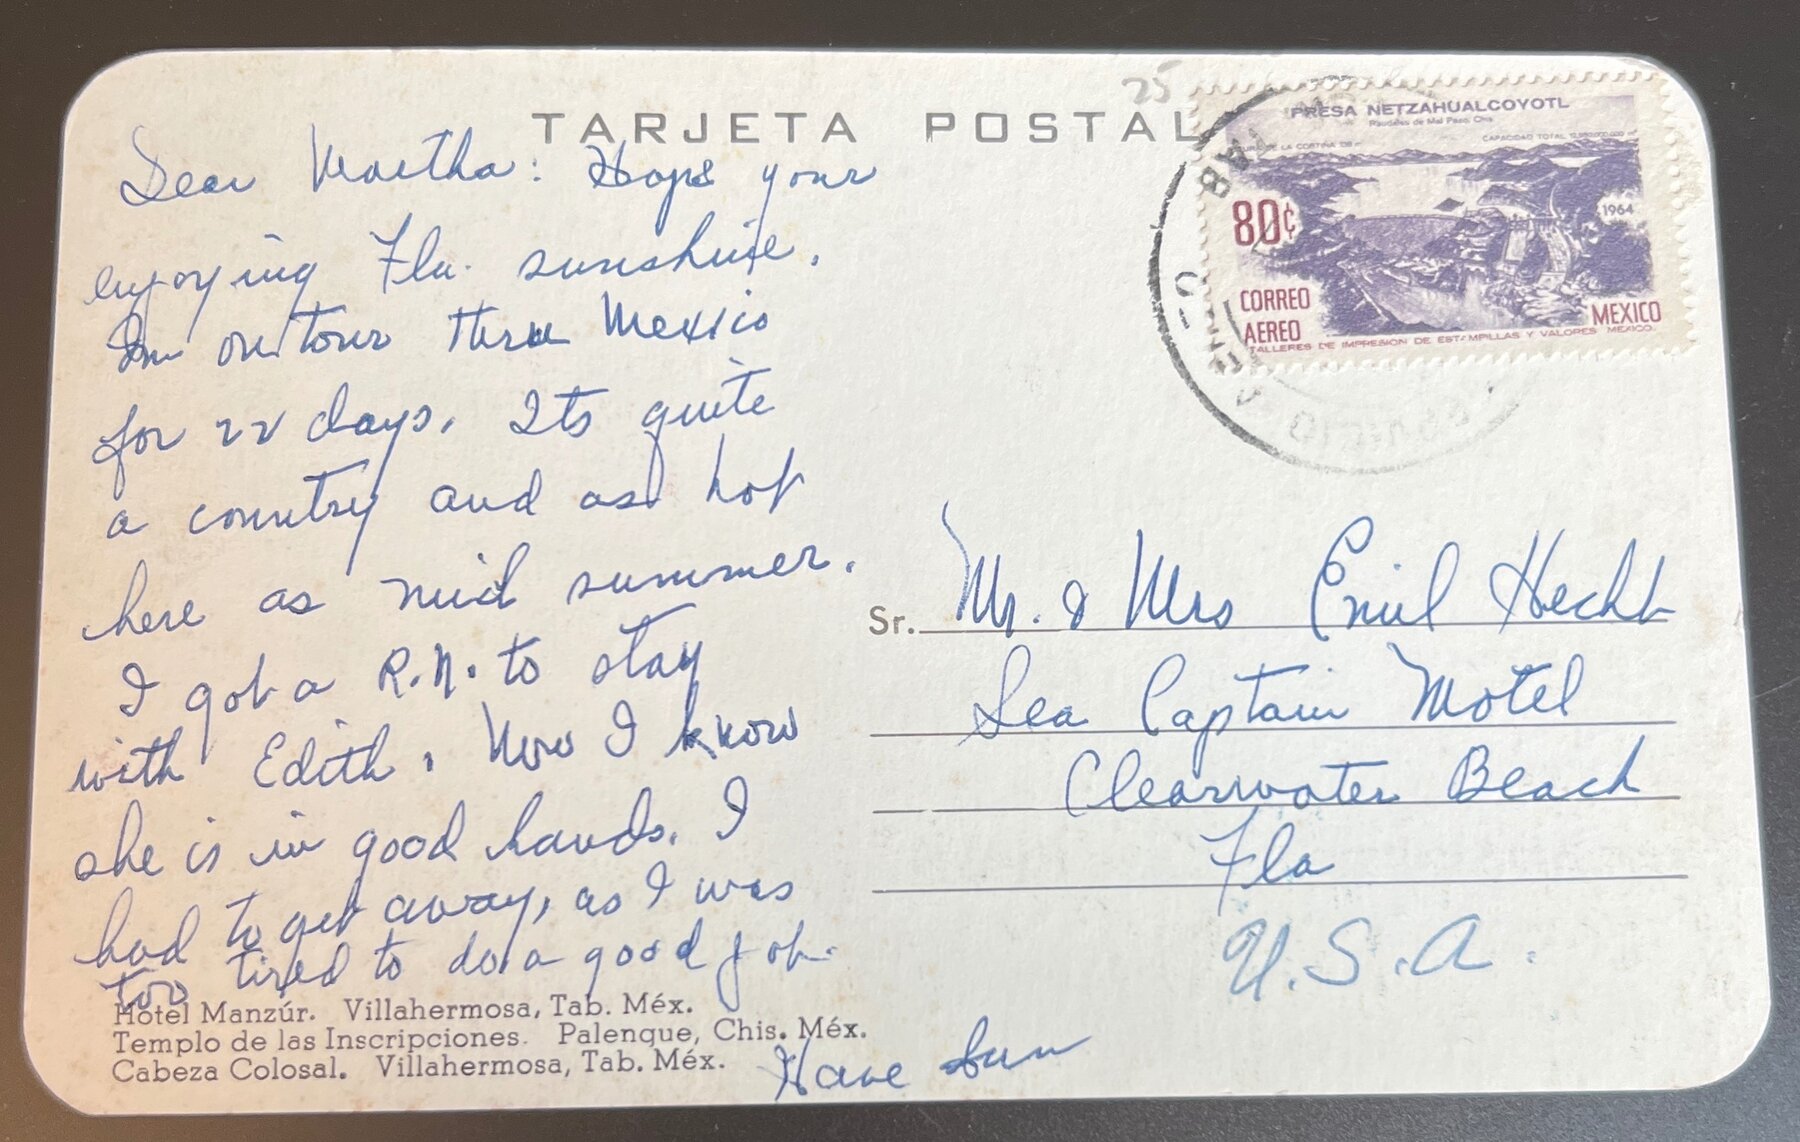 TARJETA POSTAL
25
Dear Martha: Hope your
enjoying Fla. sunshine.
Im on tour thru Mexico
for 22 days. Its quite
a country and as hot
here as mid summer.
I got a R.N. to stay
with Edith. Now I know
she is in good hands. I
had to get away, as I was
too tired to do a good job.
Have fun
Hotel Manzúr. Villahermosa, Tab. Méx.
Templo de las Inscripciones. Palenque, Chis. Méx.
Cabeza Colosal. Villahermosa, Tab. Méx.
PRESA NETZAHUALCOYOTL
Raudales de Mal Paso, Chis.
CAPACIDAD TOTAL
DE LA CORTINA
80¢
1964
CORREO
AEREO
MEXICO
TALLERES DE IMPRESION DE ESTAMPILLAS Y VALORES MEXICO.
Sr. Mr. & Mrs Emil Hecht
Sea Captain Motel
Clearwater Beach
Fla
U.S.A.